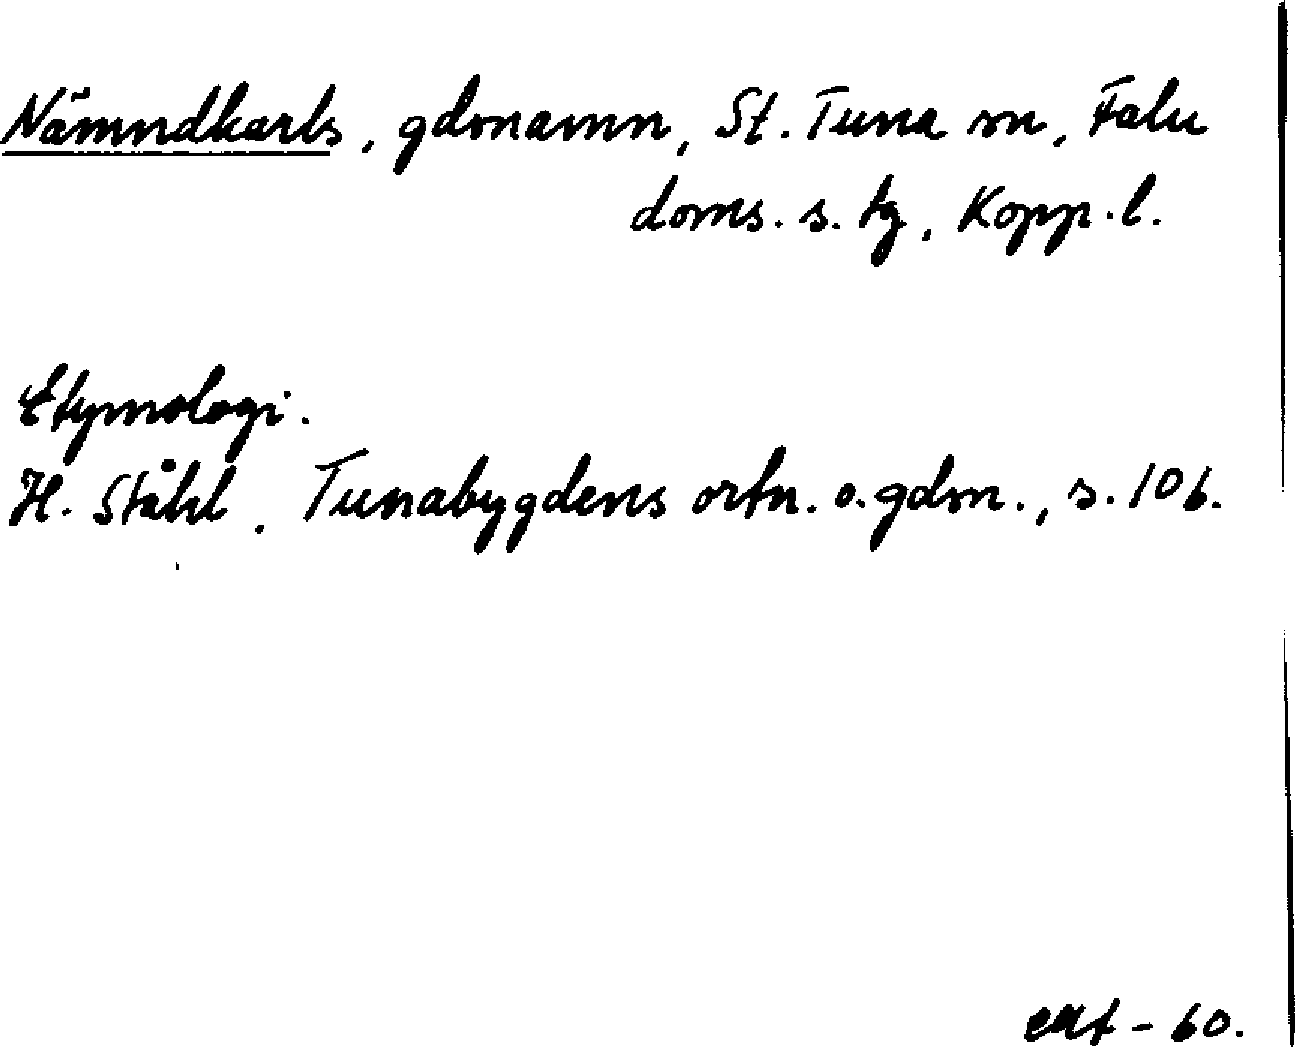 Nämndkarls, gdmnamn, St. Tuna sn, Falu
doms. s. tg, Kopp. l.
Etymologi.
H. Ståhl, Tunabygdens ortn. o. gdmn., s. 106.
- 60.